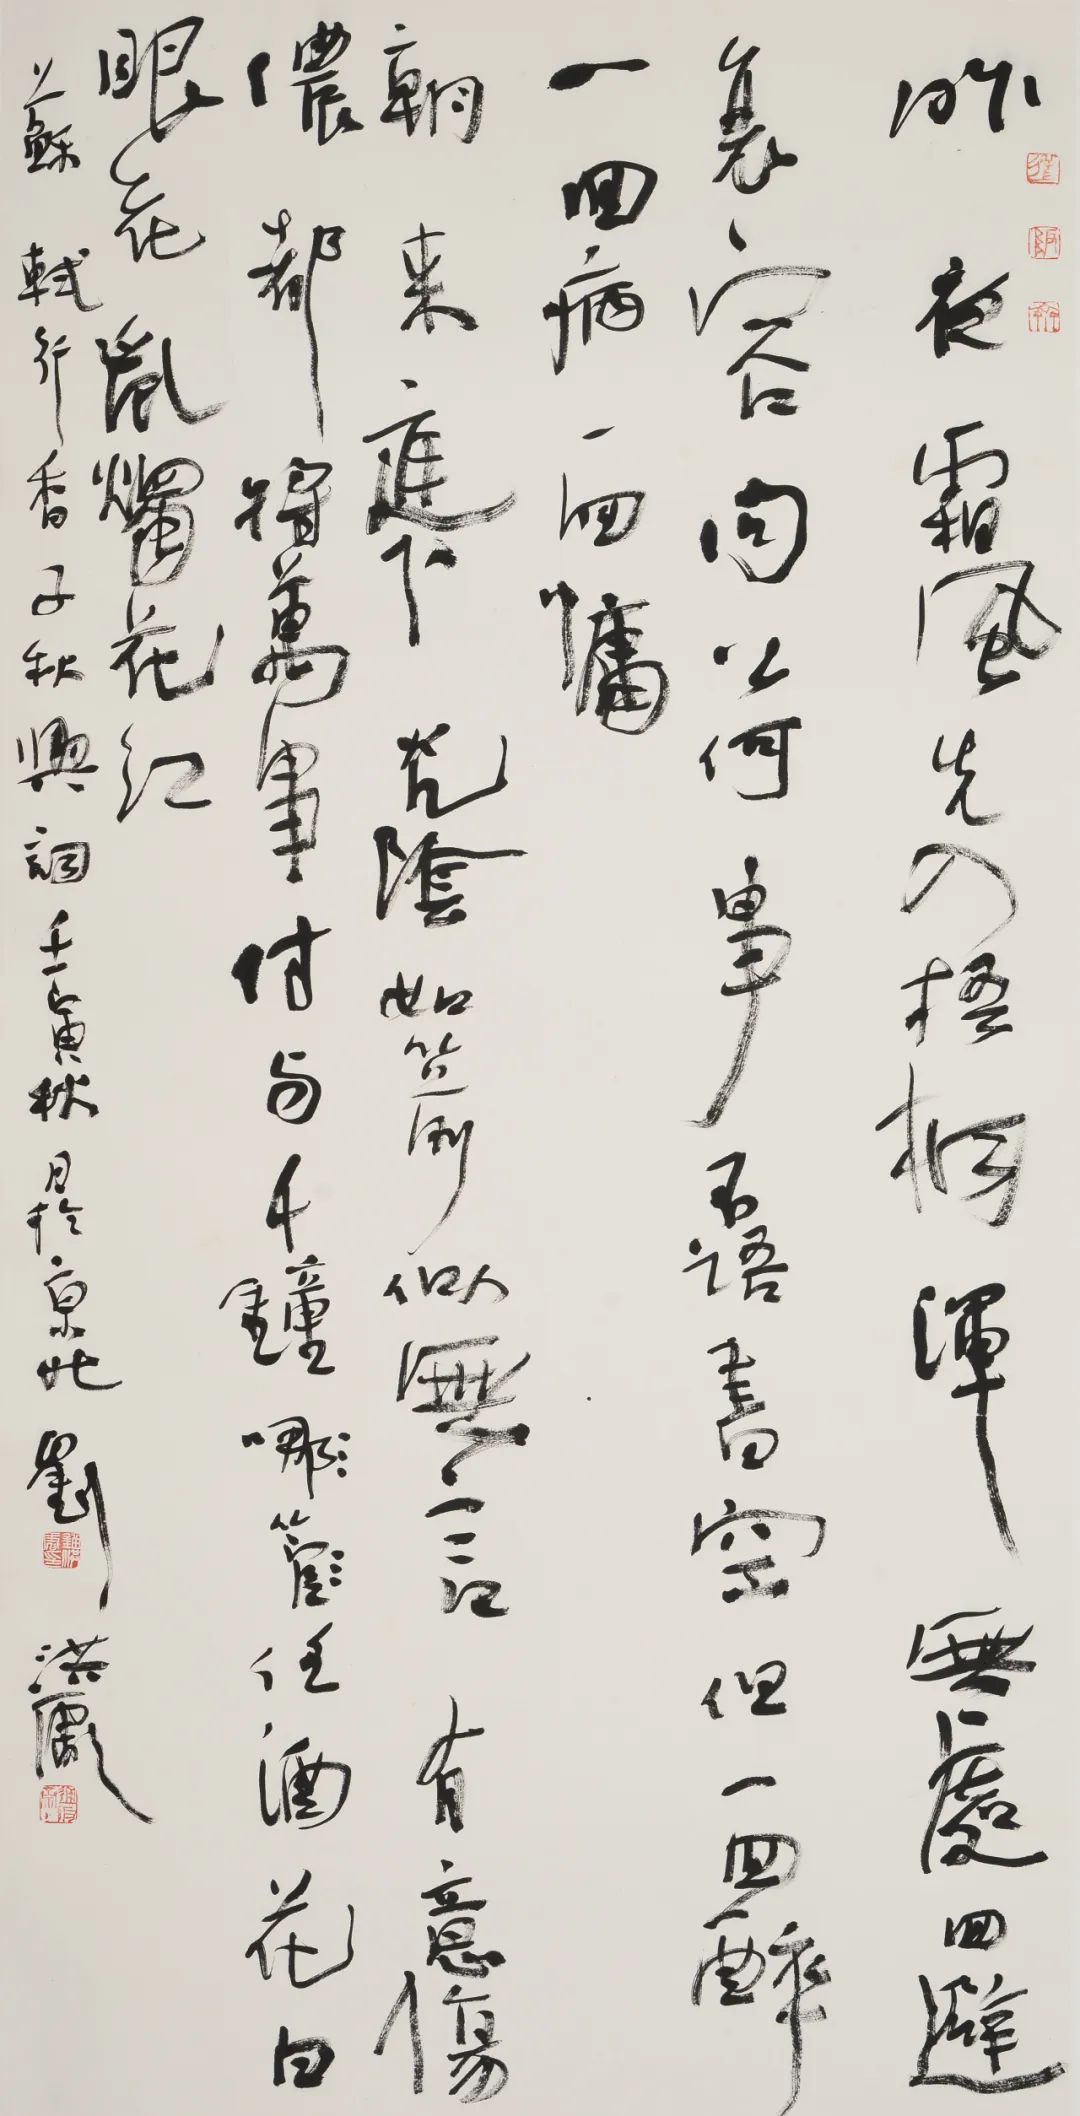 昨夜霜風先入梧桐渾無處回避
衰容問公何事不語書空但一回醉
一回病一回慵
朝來庭下光陰如箭似無言有意傷
儂都將萬事付与千鐘哪管任酒花白
眼花亂燭花紅
蘇軾行香子秋興詞壬寅秋月於京北劉洪彪